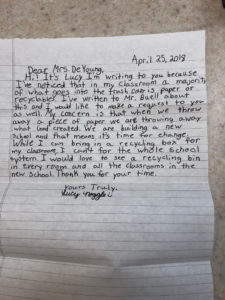 April 25, 2018
Dear Mrs. DeYoung,
Hi! It's Lucy I'm writing to you because
I've noticed that in my classroom a majority
of what goes into the trash can is paper or
recyclable. I've written to Mr. Buell about
this and I would like to make a request to you
as well. My concern is that when we throw
away a piece of paper we are throwing away
what Land created. We are building a new
School and that means its time for change.
While I can bring in a recycling box for
my classroom, I can't for the whole School
system. I would love to see a recycling bin
in every room and all the classrooms in the
new School. Thank you for your time.
Yours Truly,
Lucy